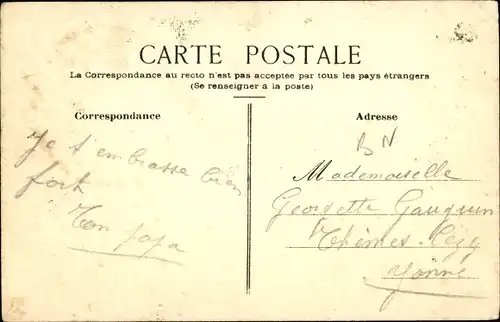 CARTE POSTALE
La Correspondance au recto n'est pas acceptée par tous les pays étrangers
(Se renseigner à la poste)
Correspondance
Adresse
BN
Je t'embrasse bien
fort
Ton papa
Mademoiselle
Georgette Gauguin
Thèmes Cézy
Yonne